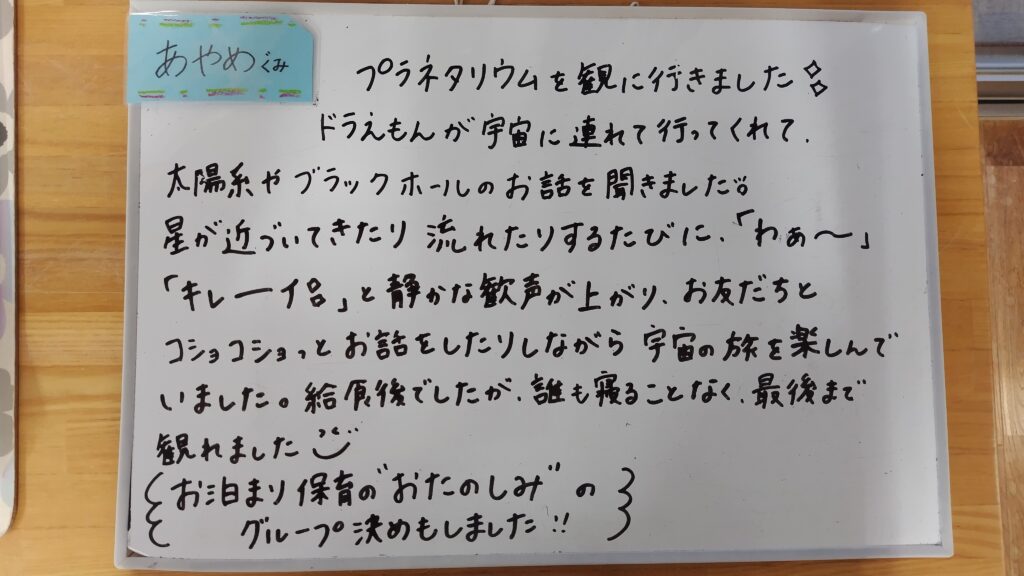 あやめぐみ
プラネタリウムを観に行きました
ドラえもんが宇宙に連れて行ってくれて、
太陽系やブラックホールのお話を聞きました。
星が近づいてきたり 流れたりするたびに、「わぁ〜」
「キレーイ」と静かな歓声が上がり、お友だちと
コショコショっとお話をしたりしながら 宇宙の旅を楽しんで
いました。給食後でしたが、誰も寝ることなく、最後まで
観れました
お泊まり保育の"おたのしみ"の
グループ決めもしました!!